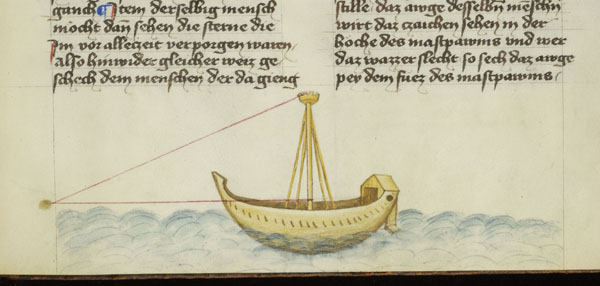 ganch Item derselbig mensch
möcht dan sehen die sterne die
im vor allezeit verporgen waren
also hinwider gleicher weiz ge
schech dem menschen der da gieng
stille daz awge desselben menschen
wirt daz zaichen sehen in der
hoche des mastpawms vnd wer
daz wazzer slecht so sech daz awge
pey dem füez des mastpawms